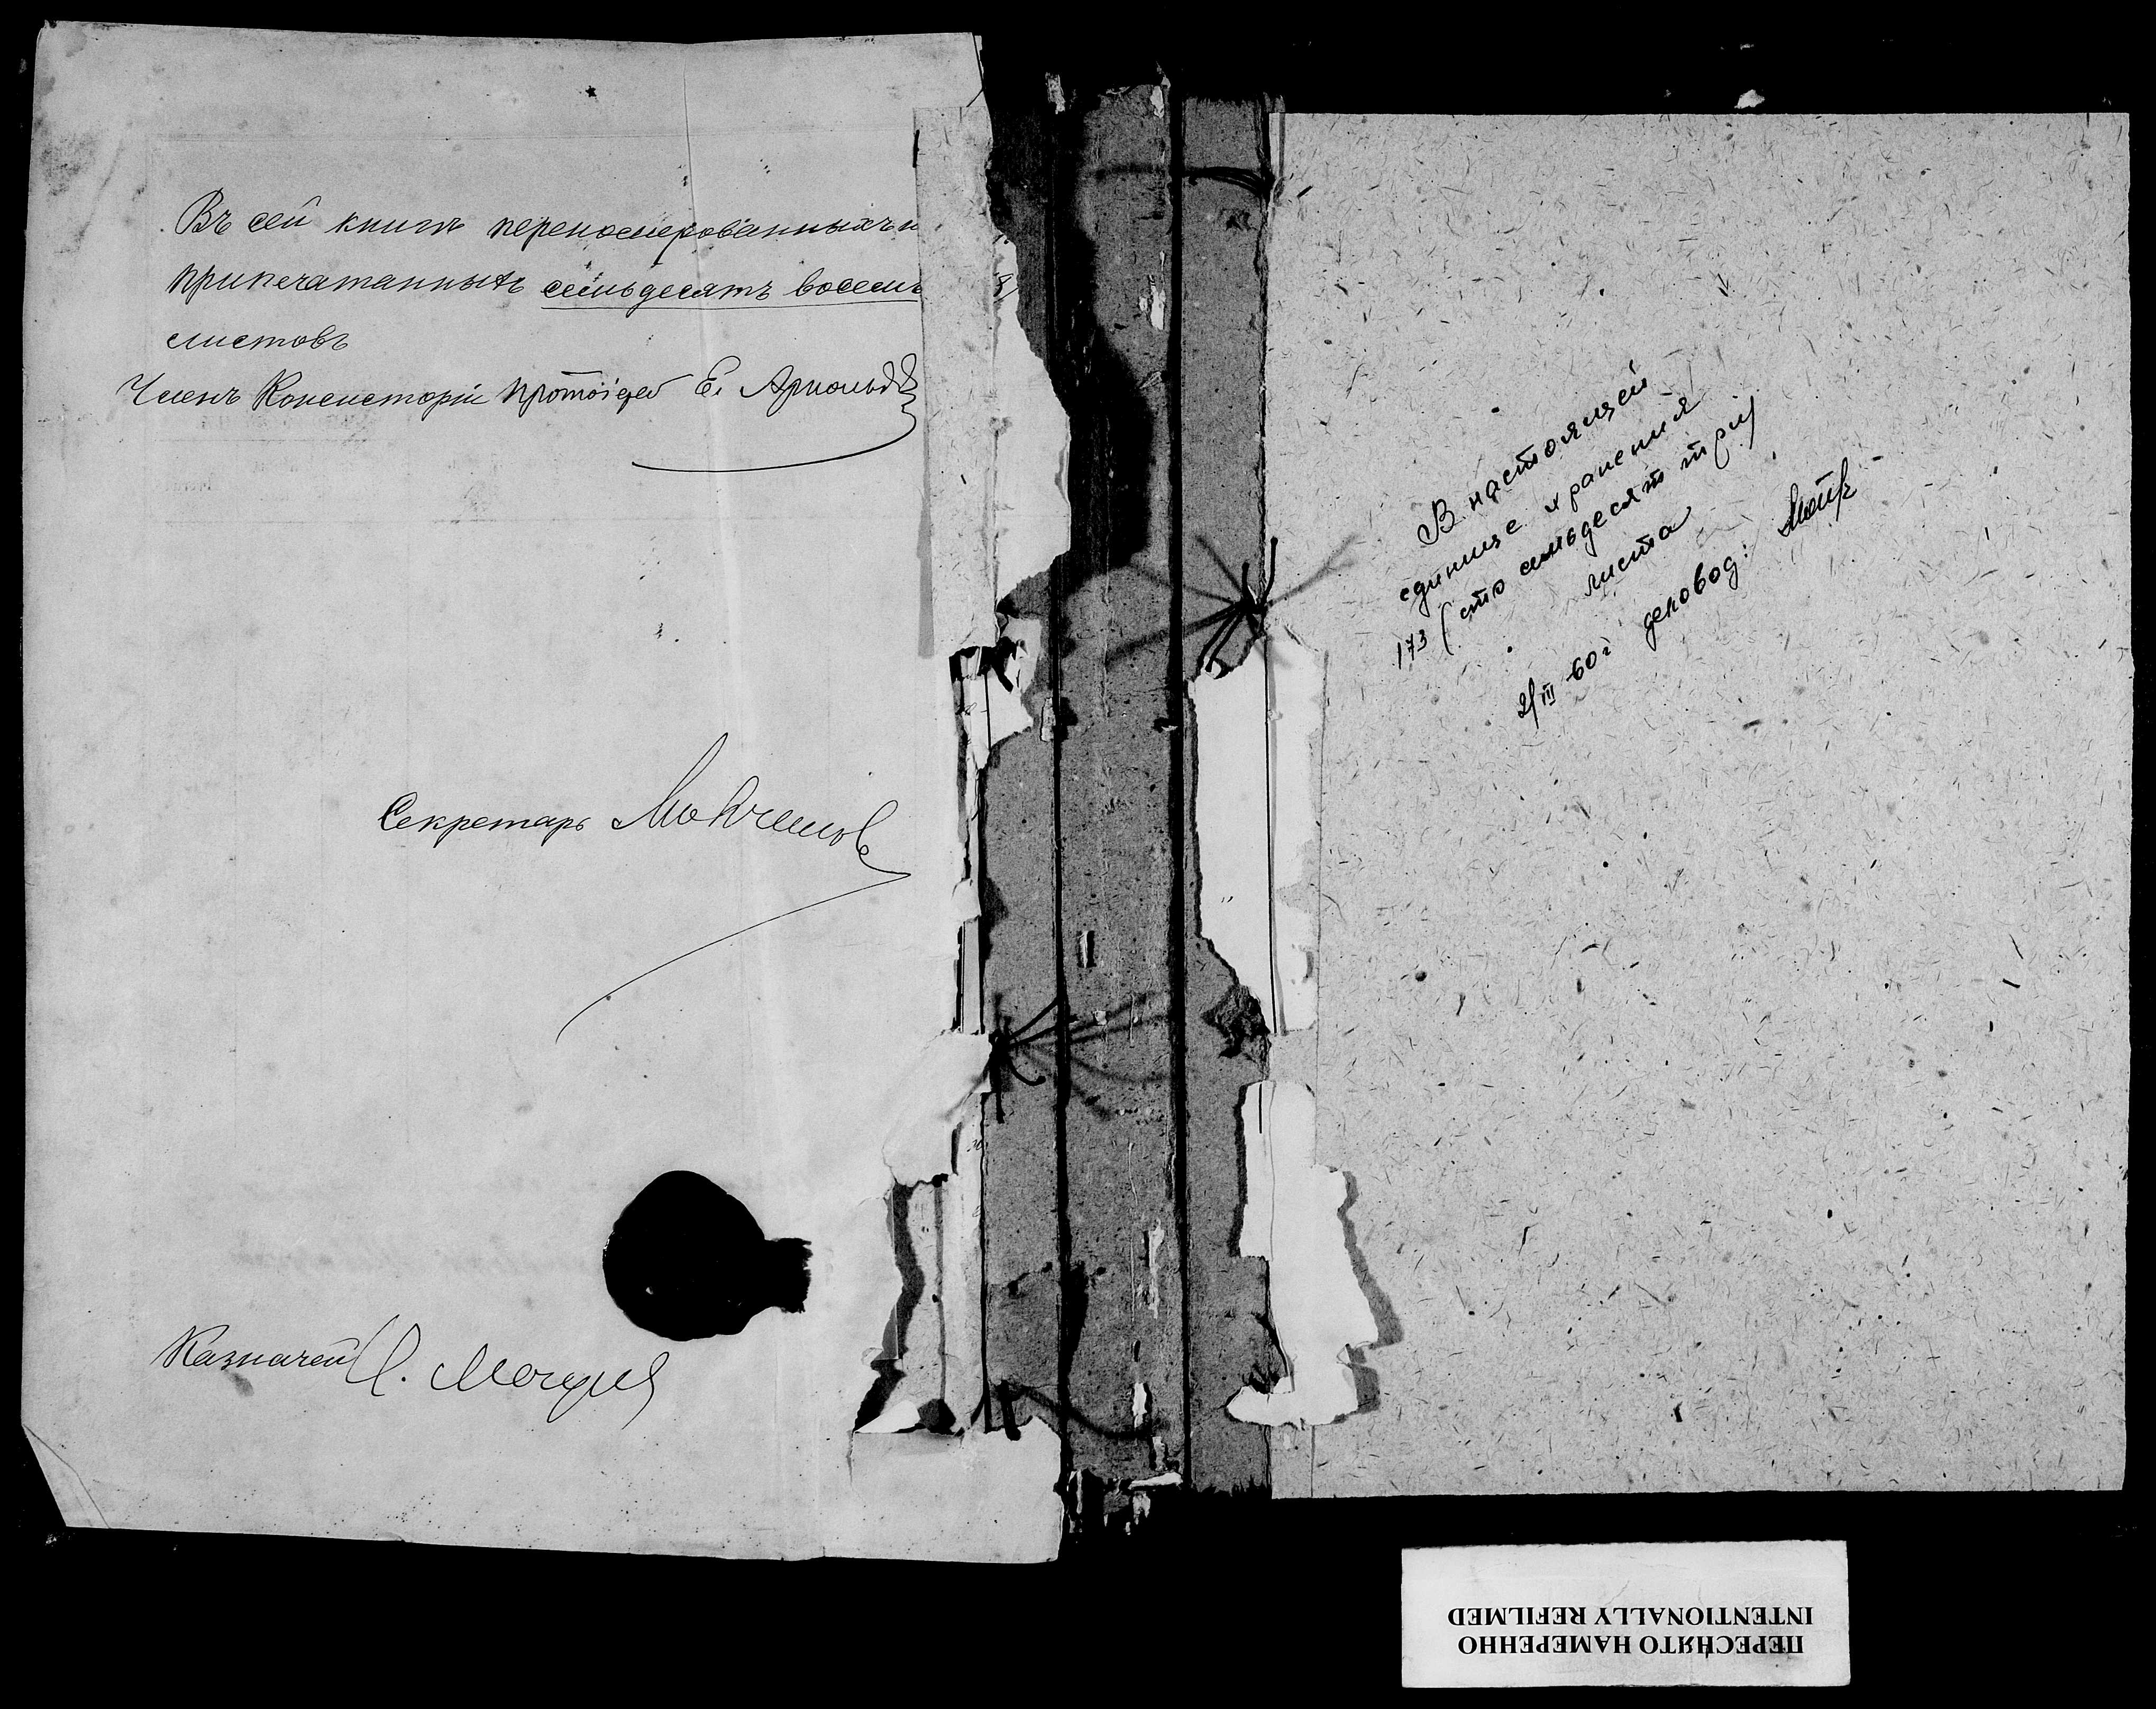 Въ сей книгѣ перенომерованныхъ и
припечатанныхъ семьдесятъ восемь
листовъ
Членъ Консисторіи протоіерей Е. Арнольдъ
Секретарь
Казначей
В настоящей
единице хранения
173 (сто семьдесят три)
листа
21/III 60 г. деловод:
ПЕРЕСНЯТО НАМЕРЕННО
INTENTIONALLY REFILMED